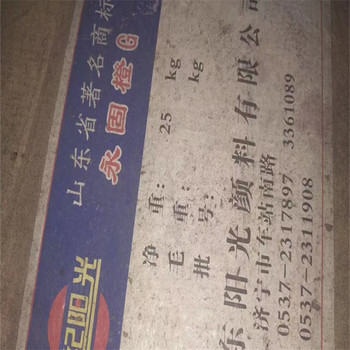 山东省著名商标
永固橙G
纪阳光
净重: 25 kg
毛重: kg
批号:
东阳光颜料有限公司
济宁市车站南路
0537-2317897 3361089
0537-2311908